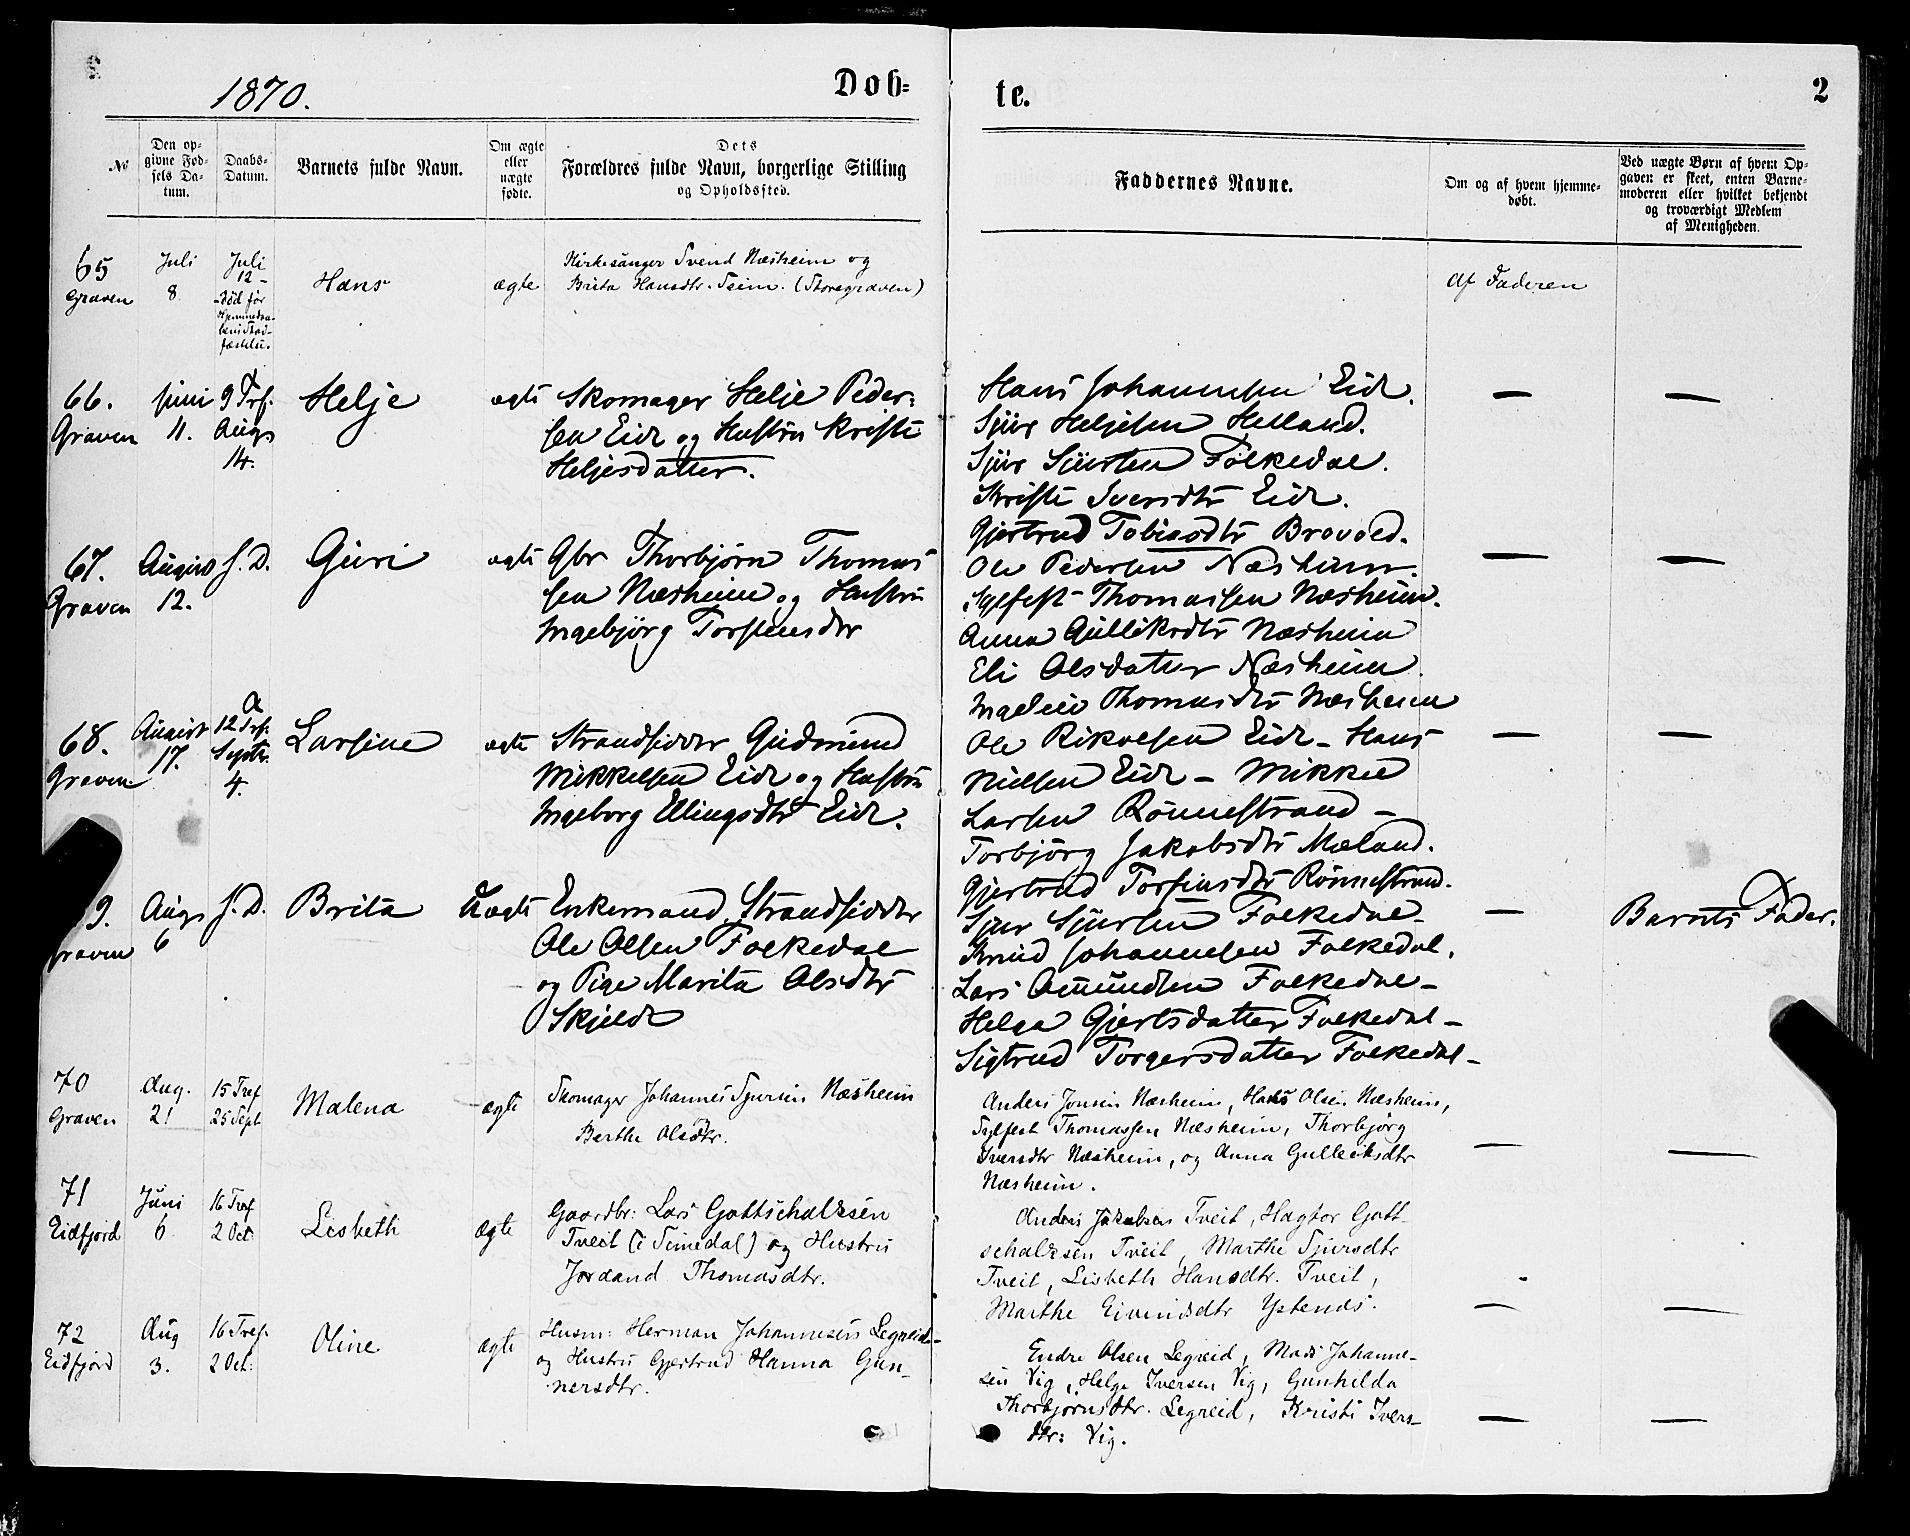 1870.
Døb=
te.
2
No
Den op-
givne Fød-
sels Da-
tum.
Daabs-
Datum.
Barnets fulde Navn.
Om ægte
eller
uægte
fødte.
Dets
Forældres fulde Navn, borgerlige Stilling
og Opholdssted.
Faddernes Navne.
Om og af hvem hjemme-
døbt.
Ved uægte Børn af hvem Op-
gaven er skeet, enten Barne-
moderen eller hvilket bekjendt
og troværdigt Medlem
af Menigheden.
65
Graven
Juli
8
Juli
12 -
- Død før
Hjemmedaa-
bens Stad-
fæstelse.
Hans
ægte
Kirkesanger Svend Næsheim og
Brita Hansdtr. Seim. (Storegraven)
Af Faderen
66.
Graven
Juni
11.
9 Trf.
Augs
14.
Helje
ægte
Skomager Helje Peder-
sen Eide og Hustru Kristi
Heljesdatter.
Hans Johannesen Eide.
Sjur Heljesen Helland.
Sjur Sjursen Folkedal.
Kristi Iversdtr Eide.
Gjertrud Tobiasdtr Bravold.
—
—
67.
Graven
August
12.
S. D.
Guri
ægte
Gbr Thorbjørn Thomas
sen Næsheim og Hustru
Ingebjørg Torstensdtr
Ole Pedersen Næsheim.
Sylfest Thomassen Næsheim.
Anna Gulliksdtr Næsheim
Eli Olsdatter Næsheim
Thomasdtr Næsheim
—
—
68.
Graven
August
17.
12 Trf.
Septr.
4.
Larsine
ægte
Strandsidder Gudmund
Mikkelsen Eide og Hustru
Ingeborg Ellingsdtr Eide.
Ole Rikolsen Eide - Hans
Nielsen Eide - Mikkel
Larsen Rønnestrand -
Torbjørg Jakobsdtr Mæland.
Gjertrud Torfinsdtr Rønnestrand.
—
—
9.
Graven
Augs
6
S. D.
Brita
Uægte
Enkemand Strandsidder
Ole Olsen Folkedal
og Pige Marita Olsdtr
Skjelde
Sjur Sjursen Folkedal -
Knud Johannesen Folkedal.
Lars Amundsen Folkedal -
Helga Gjertsdatter Folkedal -
Sigtrud Torgersdatter Folkedal -
—
Barnets Fader.
70
Graven
Aug.
21
15 Tref
25 Sept
Malena
ægte
Skomager Johannes Sjursen Næsheim
Barthe Olsdtr.
Anders Jonsen Næsheim, Hans Olsen Næsheim,
Sylfest Thomassen Næsheim, Thorbjørg
Iversdtr Næsheim, og Anna Gulleiksdtr
Næsheim.
—
—
71
Eidfjord
Juni
6
16 Tref
2 Oct.
Lisbeth
ægte
Gaardbr: Lars Gottschalksen
Tveit (i Simedal) og Hustru
Jordand Thomasdtr.
Anders Jakobsen Tveit, Hagtor Gott-
schalksen Tveit, Marthe Sjursdtr
Tveit, Lisbeth Hansdtr. Tveit,
Marthe Eivindsdtr Ystends.
—
—
72
Eidfjord
Aug
3.
16 Tref.
2 Oct.
Oline
ægte
Husm: Herman Johannesen Legreid-
og Hustru Gjertrud Hanna Gun-
nersdtr.
Endre Olsen Legreid, Mads Johanne-
sen Vig, Helge Iversen Vig, Gunhilda
Thorbjørnsdtr. Legreid, Kristi Ivers-
dtr: Vig.
—
—